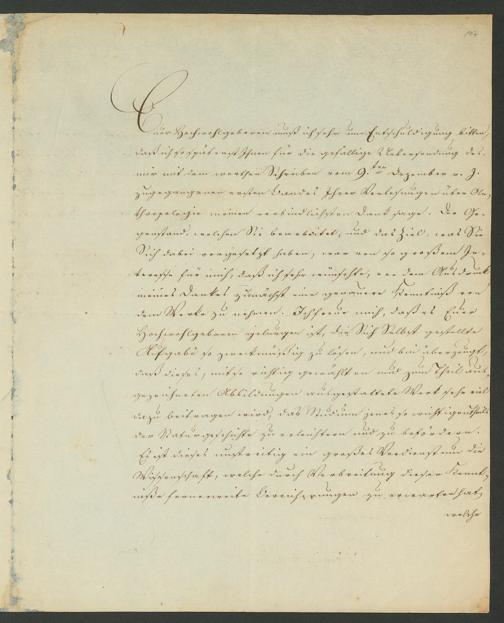 Euer Hochwohlgeboren muß ich sehr um Entschuldigung bitten,
daß ich so spät erst Ihnen für die gefällige Uebersendung des
mir mit dem werthen Schreiben vom 9.ten Dezember v. J.
zugegangenen ersten Bandes Ihrer Vorlesungen über
meinen verbindlichsten Dank sage. Der Ge-
genstand, welchen Sie bearbeitet, und das Ziel, was Sie
Sich dabei vorgesetzt haben, war von so großem In-
teresse für mich, daß ich sehr wünschte, vor dem Ausdruck
meines Dankes zunächst eine genauere Kenntniß von
dem Werke zu nehmen. Ich freue mich, daß es Euer
Hochwohlgeboren gelungen ist, die Sich Selbst gestellte
Aufgabe so zweckmäßig zu lösen, und bin überzeugt,
daß dieses, mit so richtig gewählten und zum Theil aus-
gezeichneten Abbildungen ausgestattete Werk sehr viel
dazu beitragen wird, das Studium jenes so wichtigen Theils
der Naturgeschichte zu erleichtern und zu befördern.
Es ist dieses unstreitig ein großes Verdienst um die
Wissenschaft, welche durch Verbreitung dieser Kennt-
niße Bereicherungen zu erwarten hat,
welche